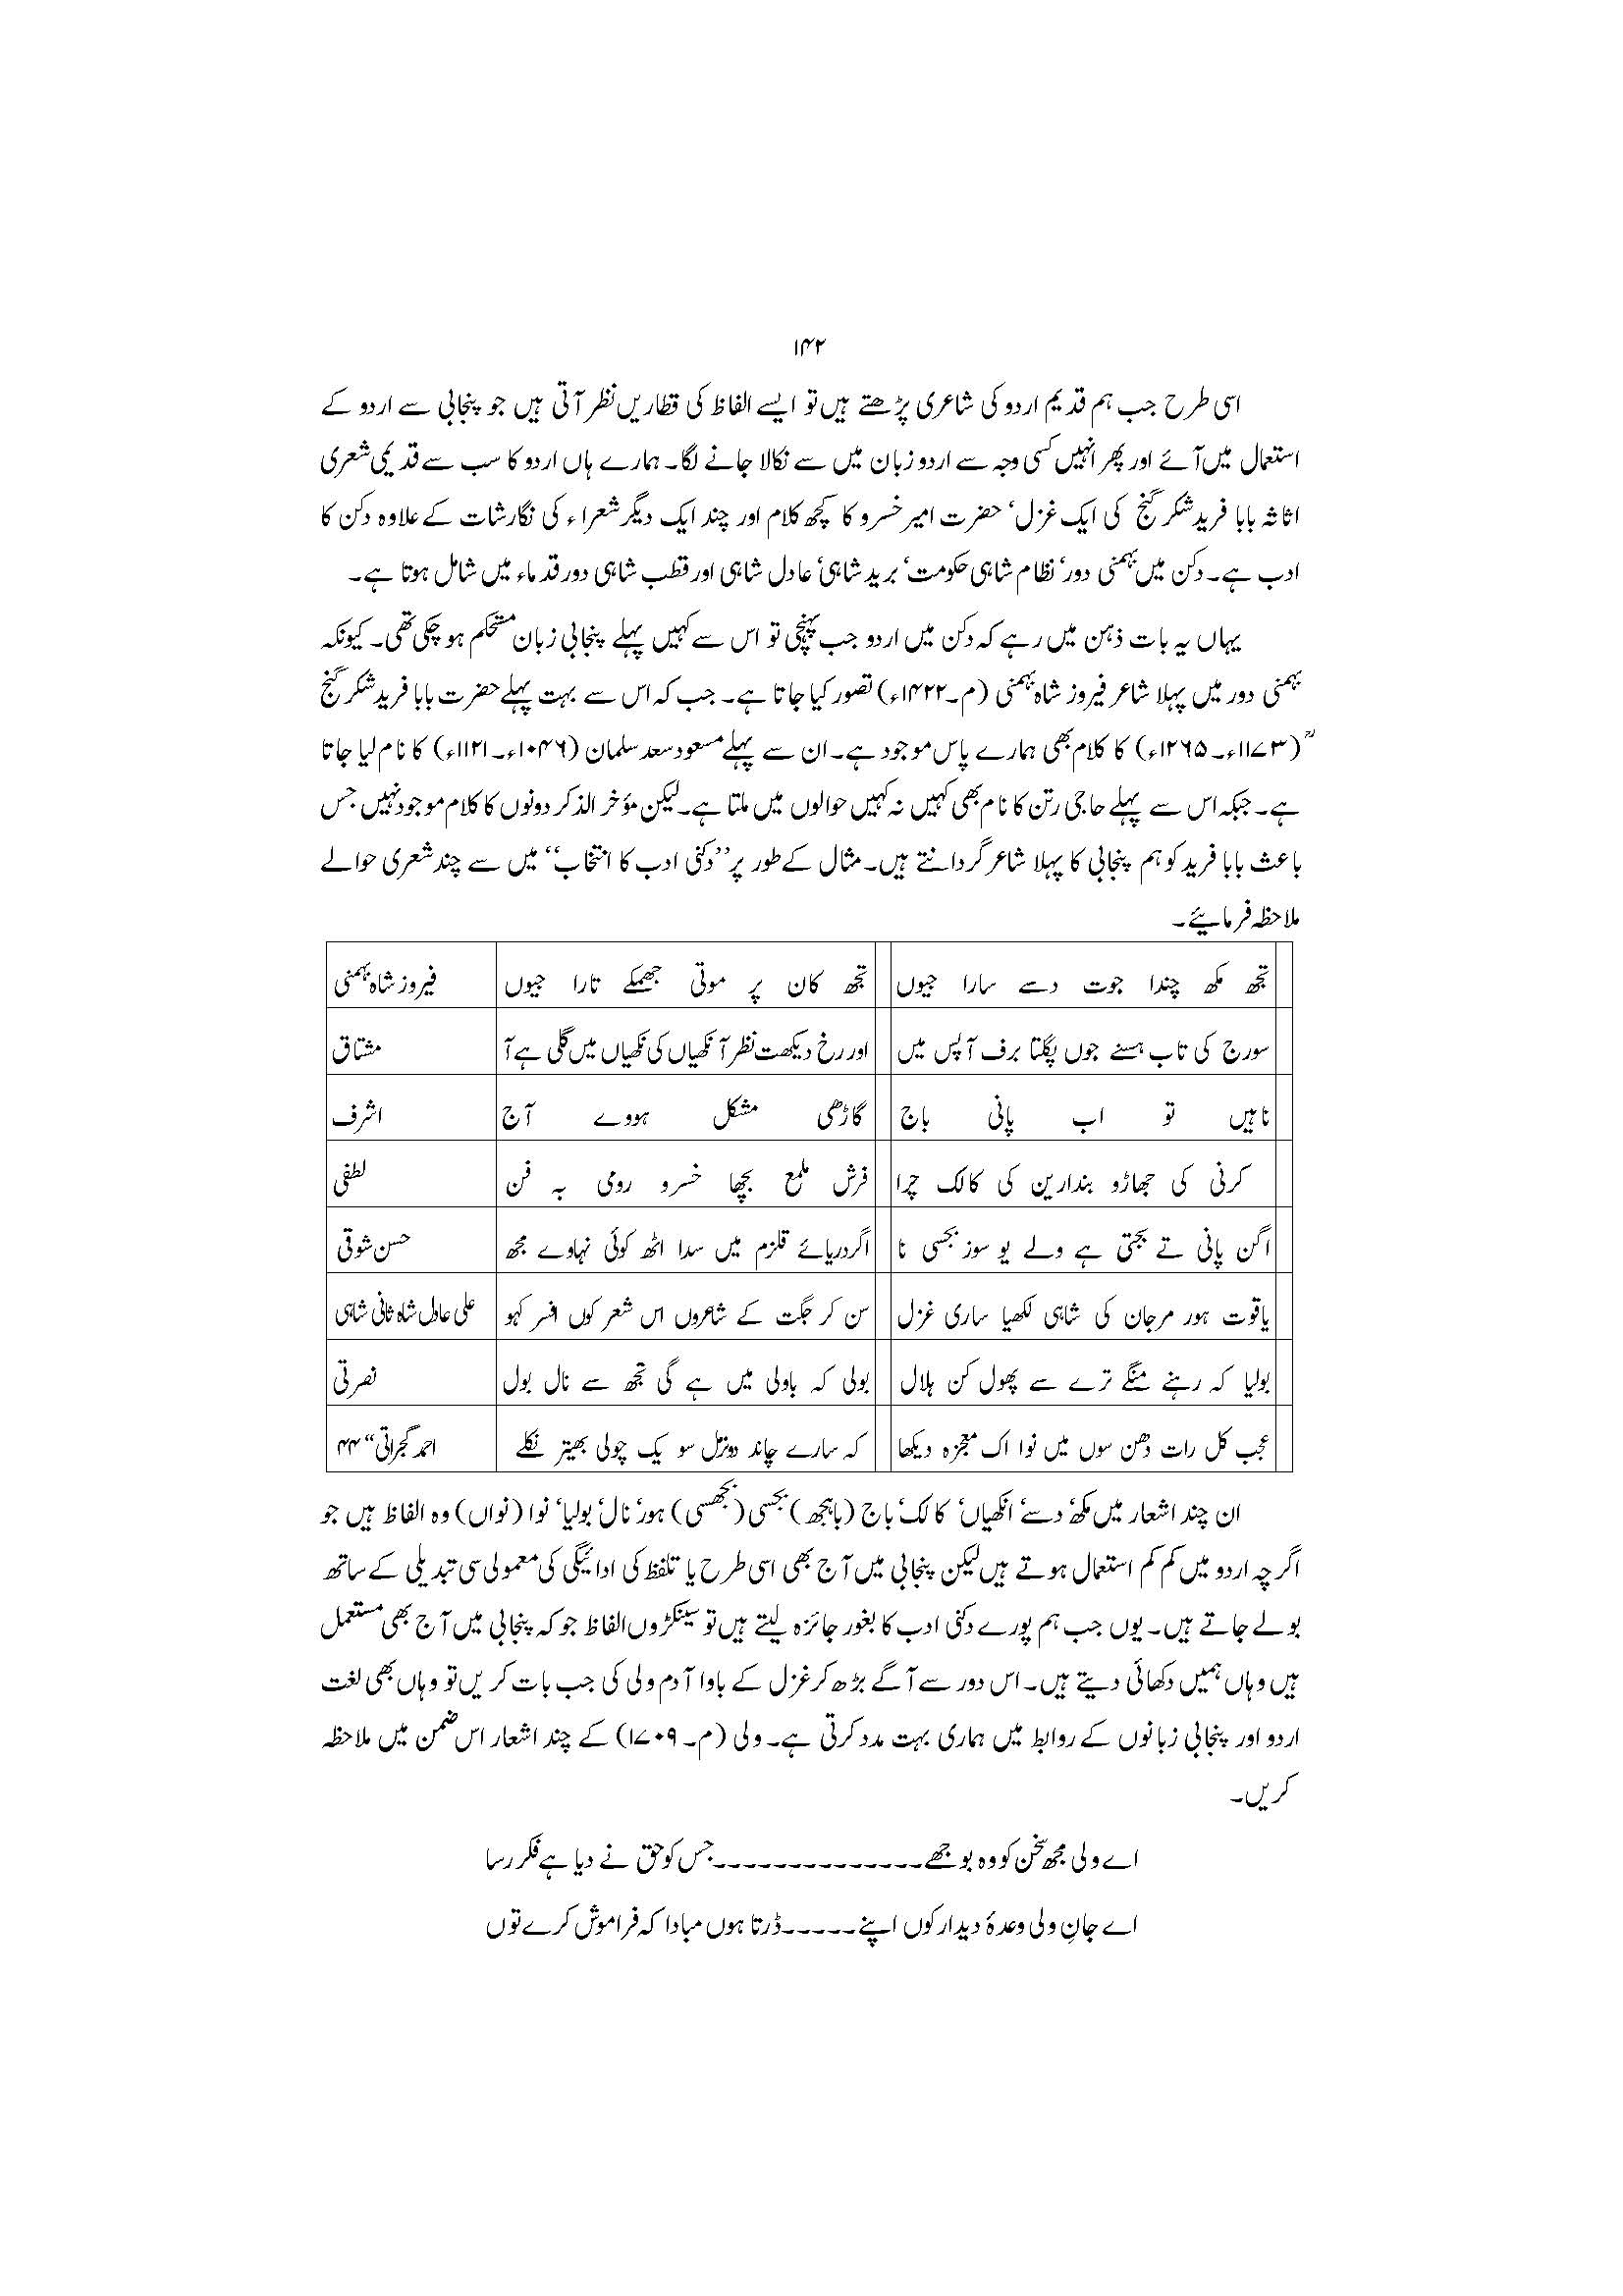 ۱۴۲
اسی طرح جب ہم قدیم اردو کی شاعری پڑھتے ہیں تو ایسے الفاظ کی قطاریں نظر آتی ہیں جو پنجابی سے اردو کے
استعمال میں آئے اور پھر انہیں کسی وجہ سے اردو زبان میں سے نکالا جانے لگا۔ ہمارے ہاں اردو کا سب سے قدیمی شعری
اثاثہ بابا فرید شکر گنج کی ایک غزل‘ حضرت امیر خسرو کا کچھ کلام اور چند ایک دیگر شعراء کی نگارشات کے علاوہ دکن کا
ادب ہے۔ دکن میں بہمنی دور‘ نظام شاہی حکومت‘ برید شاہی‘ عادل شاہی اور قطب شاہی دور قدماء میں شامل ہوتا ہے۔
یہاں یہ بات ذہن میں رہے کہ دکن میں اردو جب پہنچی تو اس سے کہیں پہلے پنجابی زبان مستحکم ہو چکی تھی۔ کیونکہ
بہمنی دور میں پہلا شاعر فیروز شاہ بہمنی (م۔۱۴۲۲ء) تصور کیا جاتا ہے۔ جب کہ اس سے بہت پہلے حضرت بابا فرید شکر گنج
ؒ (۱۱۷۳ء۔۱۲۶۵ء) کا کلام بھی ہمارے پاس موجود ہے۔ ان سے پہلے مسعود سعد سلمان (۱۰۴۶ء۔۱۱۲۱ء) کا نام لیا جاتا
ہے۔ جبکہ اس سے پہلے حاجی رتن کا نام بھی کہیں نہ کہیں حوالوں میں ملتا ہے۔ لیکن مؤخر الذکر دونوں کا کلام موجود نہیں جس
باعث بابا فرید کو ہم پنجابی کا پہلا شاعر گردانتے ہیں۔ مثال کے طور پر ’’دکنی ادب کا انتخاب‘‘ میں سے چند شعری حوالے
ملاحظہ فرمایئے۔
تجھ مکھ چندا جوت دسے سارا جیوں تجھ کان پر موتی جھمکے تارا جیوں فیروز شاہ بہمنی
سورج کی تاب ہسنے جوں پگلتا برف آپس میں اور رخ دیکھت نظر آ نکھیاں کی نکھیاں میں گلی ہے آ مشتاق
ناہیں تو اب پانی باج گاڑھی مشکل ہووے آج اشرف
کرنی کی جھاڑو بندارین کی کالک چرا فرش ملمع بچھا خسرو رومی بہ فن لطفی
اگن پانی تے بجتی ہے ولے یو سوز بجسی نا اگر دریائے قلزم میں سدا اٹھ کوئی نہاوے مجھ حسن شوقی
یاقوت ہور مرجان کی شاہی لکھیا ساری غزل سن کر جگت کے شاعروں اس شعر کوں افسر کہو علی عادل شاہ ثانی شاہی
بولیا کہ رہنے منگے ترے سے پھول کن ہلال بولی کہ باولی میں ہے گی تجھ سے نال بول نصرتی
عجب کل رات دھن سوں میں نوا اک معجزہ دیکھا کہ سارے چاند دوزمل سو یک چولی بھیتر نکلے احمد گجراتی‘‘ ۴۴
ان چند اشعار میں مکھ‘ دسے‘ انکھیاں‘ کالک‘ باج (باہجھ) بجسی (بجھسی) ہور‘ نال‘ بولیا‘ نوا (نواں) وہ الفاظ ہیں جو
اگرچہ اردو میں کم کم استعمال ہوتے ہیں لیکن پنجابی میں آج بھی اسی طرح یا تلفظ کی ادائیگی کی معمولی سی تبدیلی کے ساتھ
بولے جاتے ہیں۔ یوں جب ہم پورے دکنی ادب کا بغور جائزہ لیتے ہیں تو سینکڑوں الفاظ جو کہ پنجابی میں آج بھی مستعمل
ہیں وہاں ہمیں دکھائی دیتے ہیں۔ اس دور سے آگے بڑھ کر غزل کے باوا آدم ولی کی جب بات کریں تو وہاں بھی لغت
اردو اور پنجابی زبانوں کے روابط میں ہماری بہت مدد کرتی ہے۔ ولی (م۔ ۱۷۰۹) کے چند اشعار اس ضمن میں ملاحظہ
کریں۔
اے ولی مجھ سخن کو وہ بوجھے--------------جس کو حق نے دیا ہے فکر رسا
اے جانِ ولی وعدۂ دیدار کوں اپنے-----ڈرتا ہوں مبادا کہ فراموش کرے توں